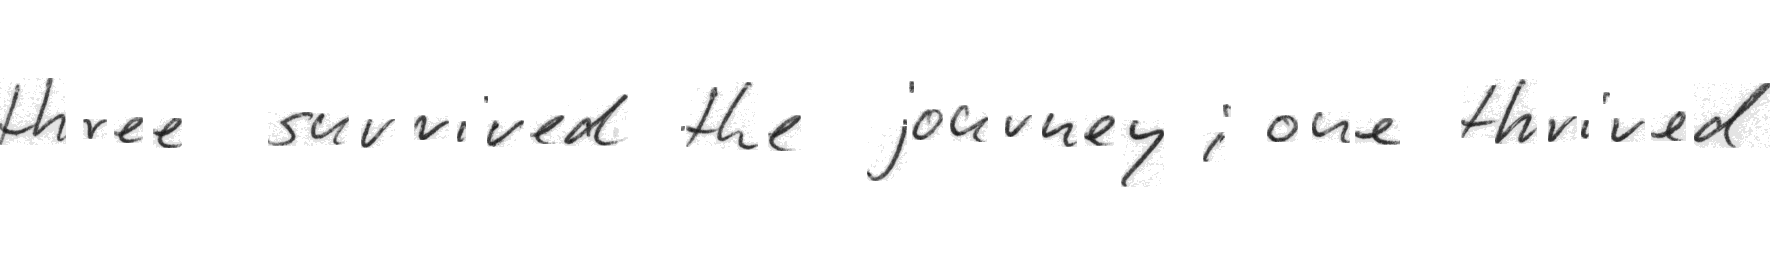 three survived the journey; one thrived